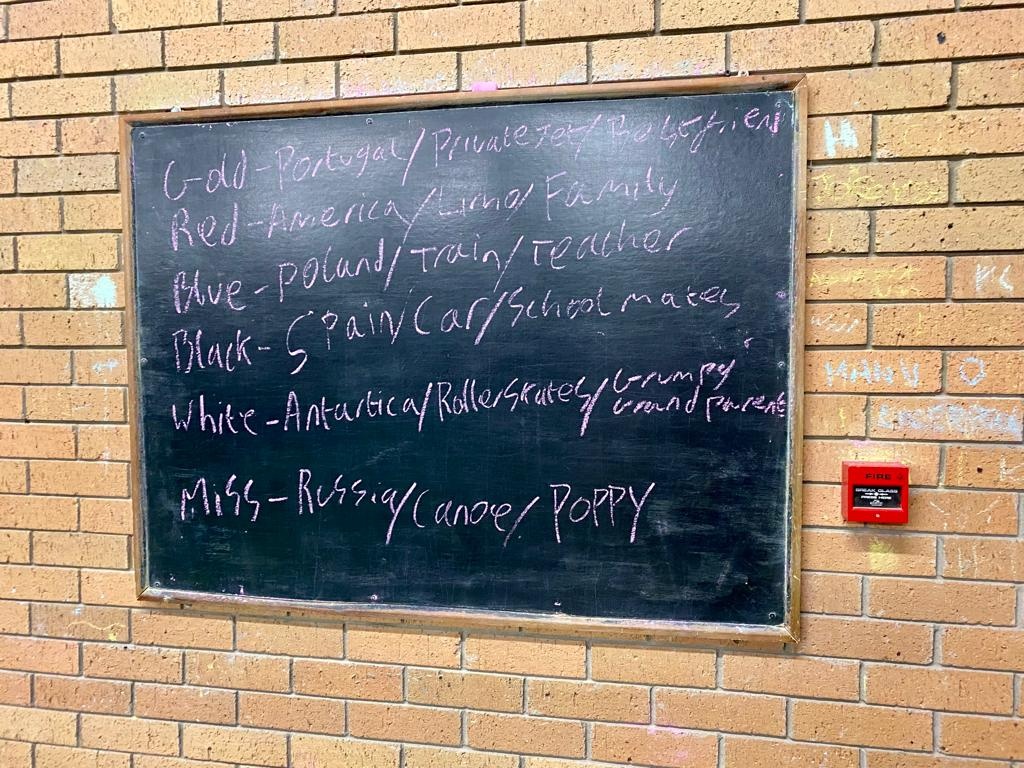 Gold-Portugal/PrivateJet/Bestfrien
Red-America/Limo/Family
Blue-Poland/Train/Teacher
Black-Spain/Car/Schoolmates
White-Antartica/Rollerskates/Grumpy
Grandparent
Miss-Russia/Canoe/POPPY
FIRE
BREAK GLASS
PRESS HERE